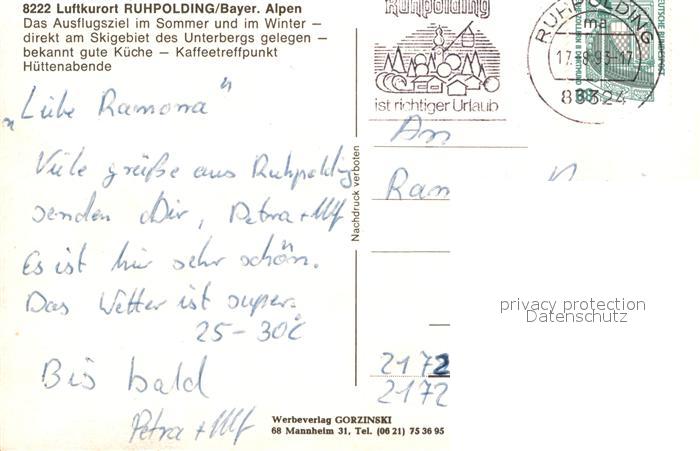 8222 Luftkurort RUHPOLDING/Bayer. Alpen
Das Ausflugsziel im Sommer und im Winter –
direkt am Skigebiet des Unterbergs gelegen –
bekannt gute Küche – Kaffeetreffpunkt
Hüttenabende
„Liebe Ramona"
Viele grüße aus Ruhpolding
senden Dir, Petra + Ulf
Es ist hier sehr schön.
Das Wetter ist super.
25 – 30°C
Bis bald
Petra + Ulf
Nachdruck verboten
Ruhpolding
ist richtiger Urlaub
RUHPOLDING
17.-8.93-17
83324
DEUTSCHE BUNDESPOST
An
Ram
2172
2172
privacy protection
Datenschutz
Werbeverlag GORZINSKI
68 Mannheim 31, Tel. (06 21) 75 36 95